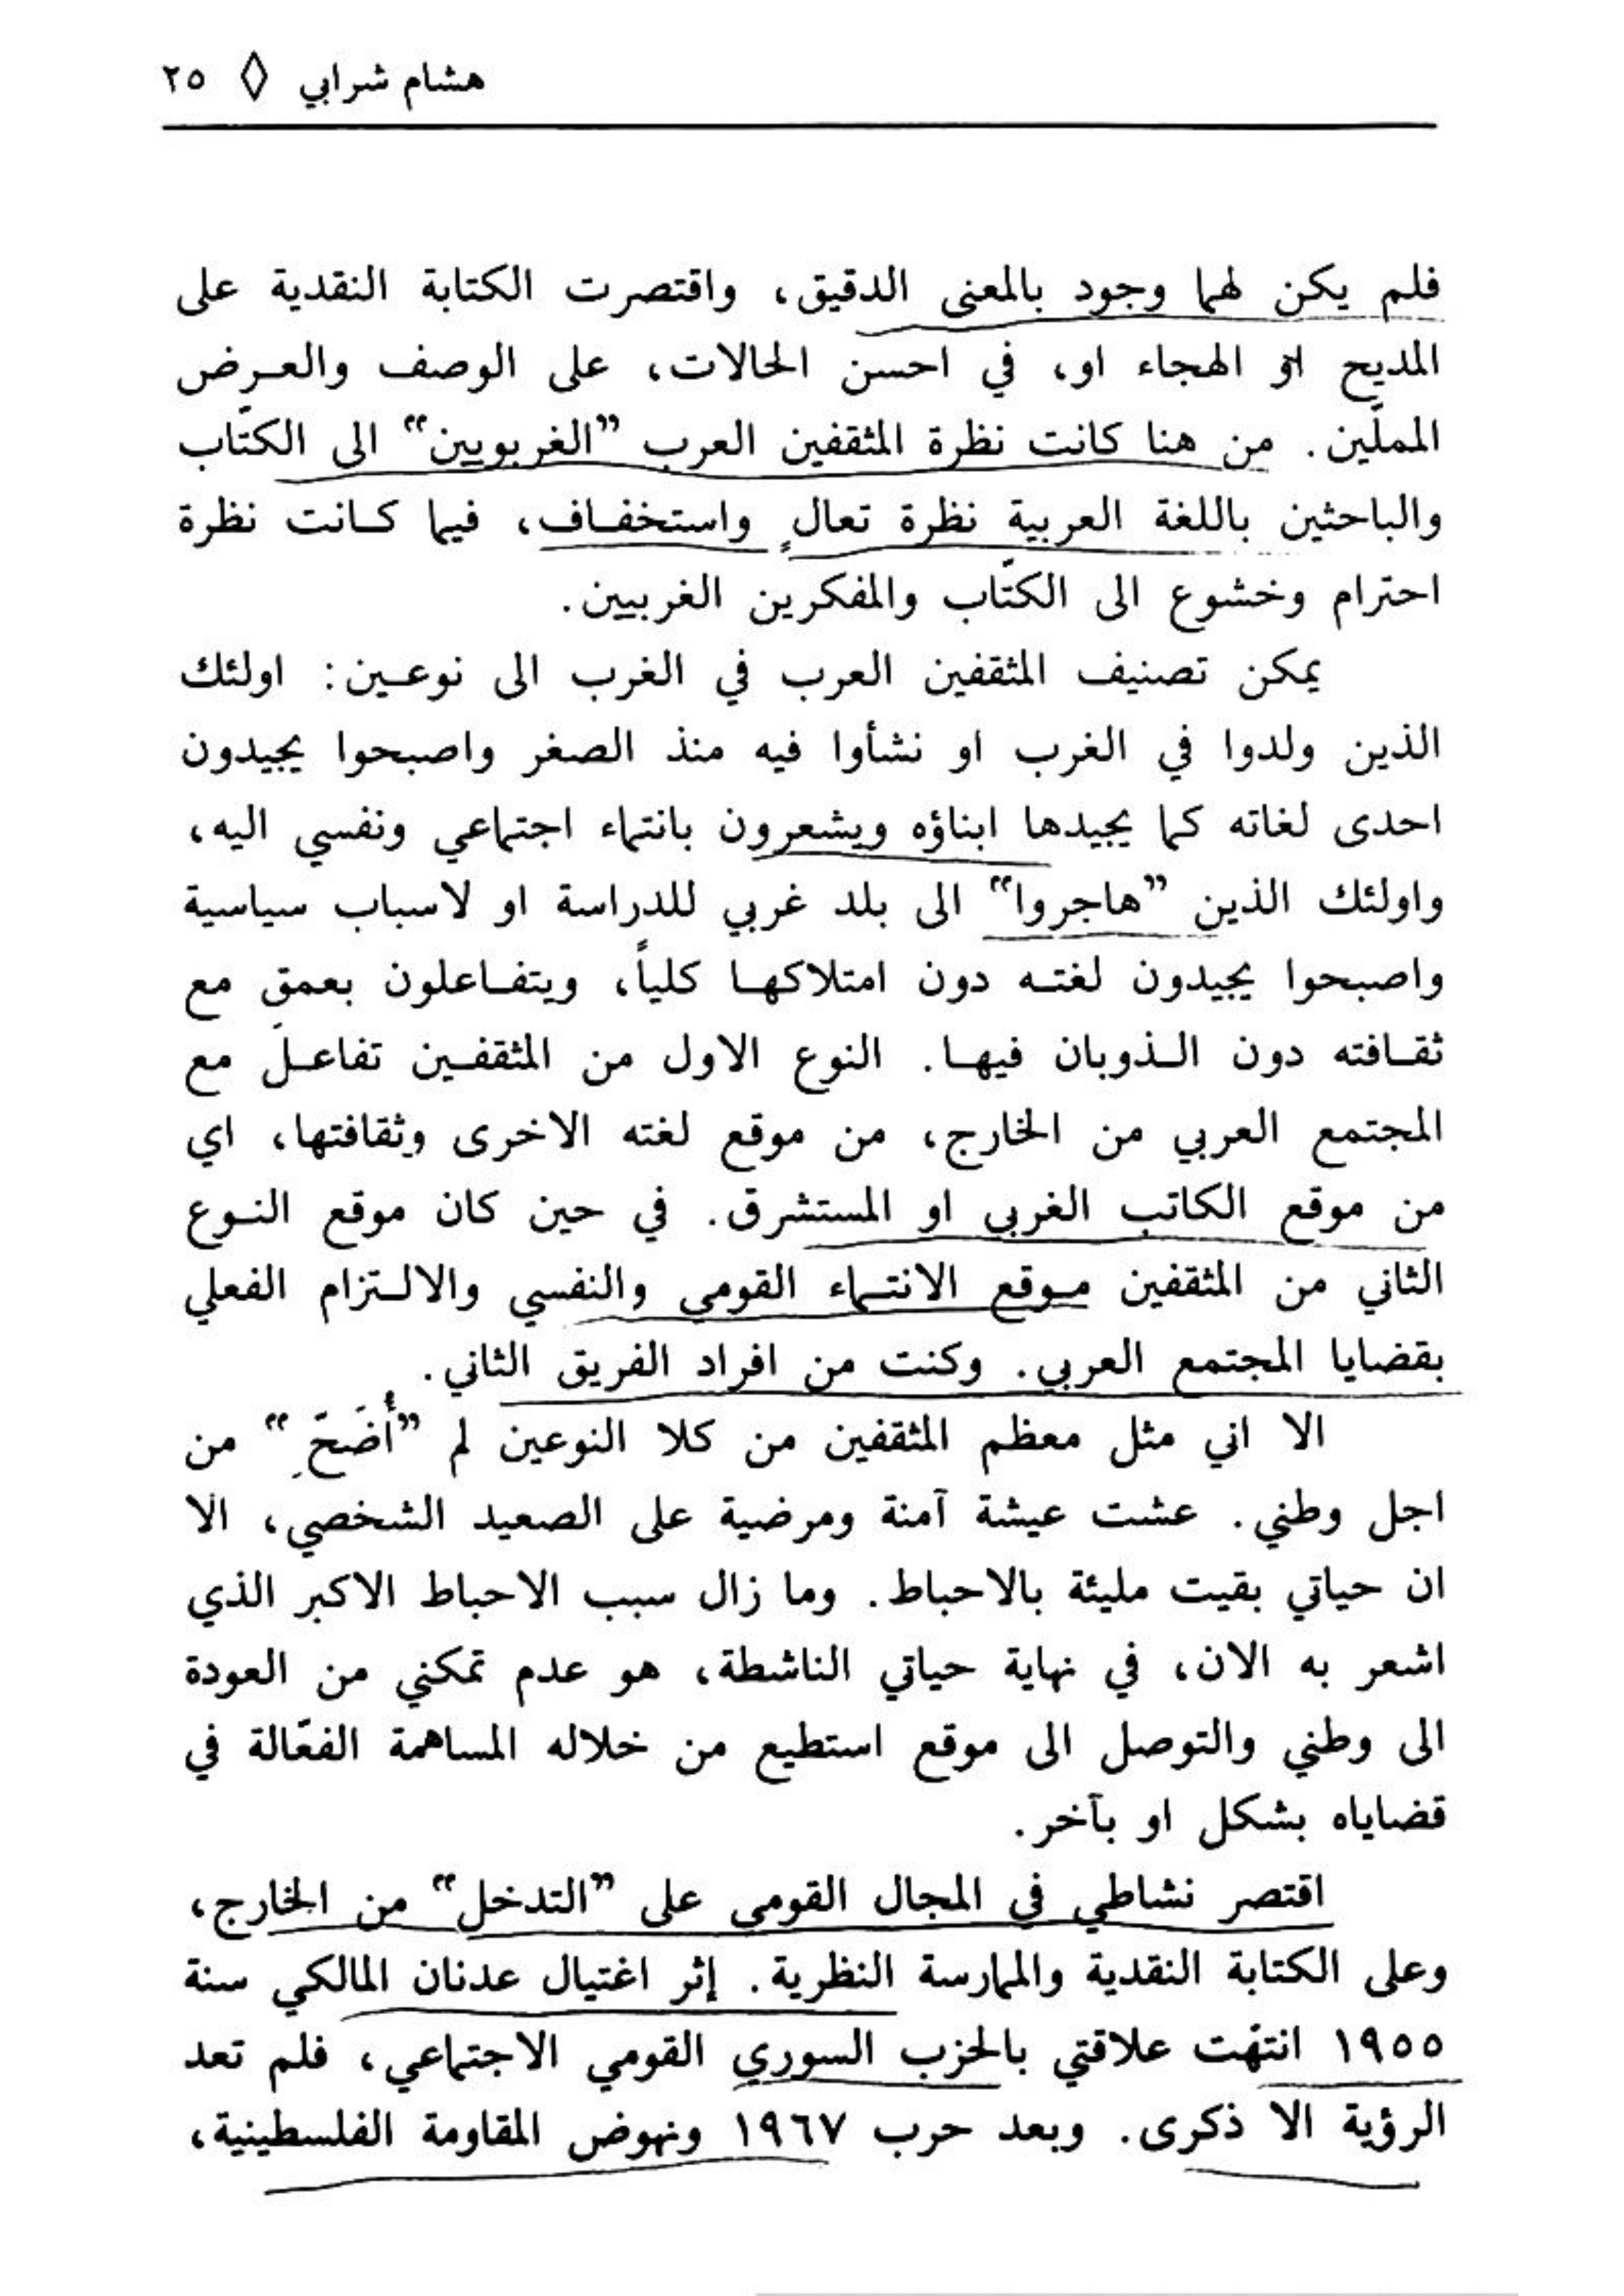 هشام شرابي ◊ ٢٥
فلم يكن لهما وجود بالمعنى الدقيق، واقتصرت الكتابة النقدية على
المديح او الهجاء او، في احسن الحالات، على الوصف والعرض
المملّين. من هنا كانت نظرة المثقفين العرب ”الغربويين“ الى الكتّاب
والباحثين باللغة العربية نظرة تعالٍ واستخفاف، فيما كانت نظرة
احترام وخشوع الى الكتّاب والمفكرين الغربيين.
يمكن تصنيف المثقفين العرب في الغرب الى نوعين: اولئك
الذين ولدوا في الغرب او نشأوا فيه منذ الصغر واصبحوا يجيدون
احدى لغاته كما يجيدها ابناؤه ويشعرون بانتماء اجتماعي ونفسي اليه،
واولئك الذين ”هاجروا“ الى بلد غربي للدراسة او لاسباب سياسية
واصبحوا يجيدون لغته دون امتلاكها كلياً، ويتفاعلون بعمق مع
ثقافته دون الذوبان فيها. النوع الاول من المثقفين تفاعلَ مع
المجتمع العربي من الخارج، من موقع لغته الاخرى وثقافتها، اي
من موقع الكاتب الغربي او المستشرق. في حين كان موقع النوع
الثاني من المثقفين موقع الانتماء القومي والنفسي والالتزام الفعلي
بقضايا المجتمع العربي. وكنت من افراد الفريق الثاني.
الا اني مثل معظم المثقفين من كلا النوعين لم ”أُضَحِّ“ من
اجل وطني. عشت عيشة آمنة ومرضية على الصعيد الشخصي، الا
ان حياتي بقيت مليئة بالاحباط. وما زال سبب الاحباط الاكبر الذي
اشعر به الان، في نهاية حياتي الناشطة، هو عدم تمكني من العودة
الى وطني والتوصل الى موقع استطيع من خلاله المساهمة الفعّالة في
قضاياه بشكل او بآخر.
اقتصر نشاطي في المجال القومي على ”التدخل“ من الخارج،
وعلى الكتابة النقدية والممارسة النظرية. إثر اغتيال عدنان المالكي سنة
١٩٥٥ انتهت علاقتي بالحزب السوري القومي الاجتماعي، فلم تعد
الرؤية الا ذكرى. وبعد حرب ١٩٦٧ ونهوض المقاومة الفلسطينية،